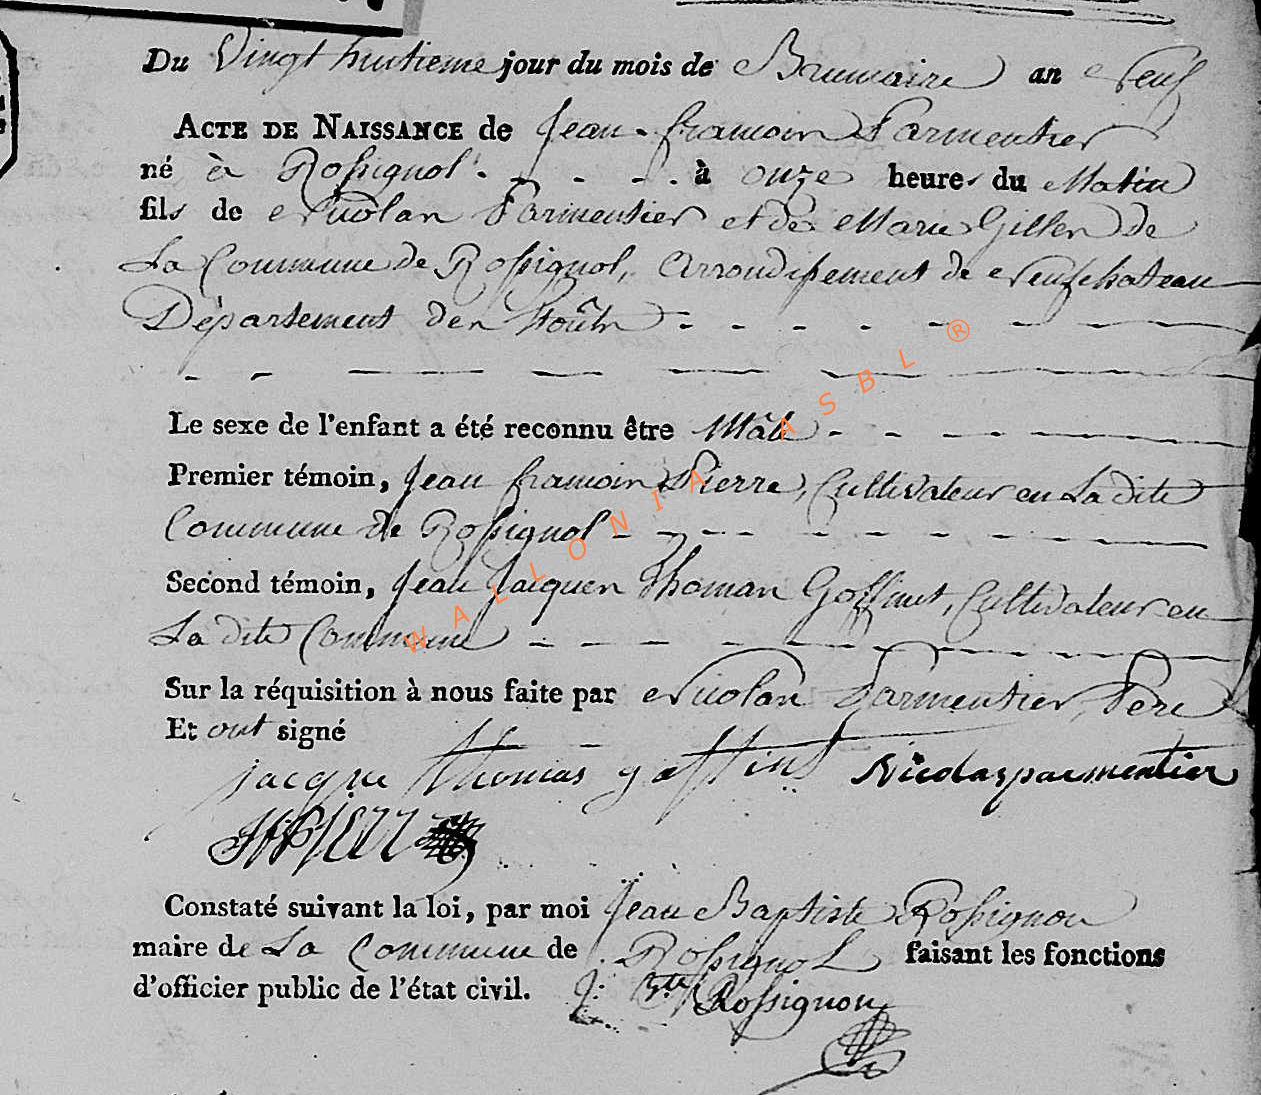 Du Vingt huitieme jour du mois de Brumaire an Neuf
ACTE DE NAISSANCE de Jean-francois Parmentier
né à Rossignol - - - - à onze heures du Matin
fils de Nicolas Parmentier et de Marie Gilles de
La Commune de Rossignol, Arrondissement de Neufchateau
Département des Forêts - - - - - - - -
Le sexe de l'enfant a été reconnu être Mâle - - - -
Premier témoin, Jean francois Pierre, Cultivateur en La dite
Commune de Rossignol - - - - - - - -
Second témoin, Jean Jacques Thomas Goffinet, Cultivateur en
La dite Commune - - - - - - - -
Sur la réquisition à nous faite par Nicolas Parmentier, Pere
Et ont signé
jacque thomas goffint Nicolas parmentier
Constaté suivant la loi, par moi Jean Baptiste Rossignon
maire de La Commune de Rossignol faisant les fonctions
d'officier public de l'état civil. J: Bte Rossignon
WALLONIA ASBL ®